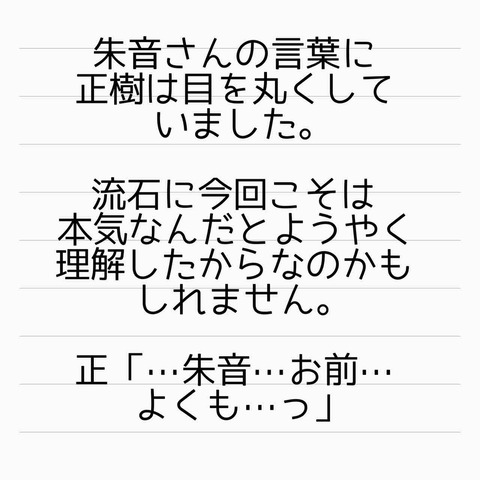 朱音さんの言葉に
正樹は目を丸くして
いました。
流石に今回こそは
本気なんだとようやく
理解したからなのかも
しれません。
正「…朱音…お前…
よくも…っ」